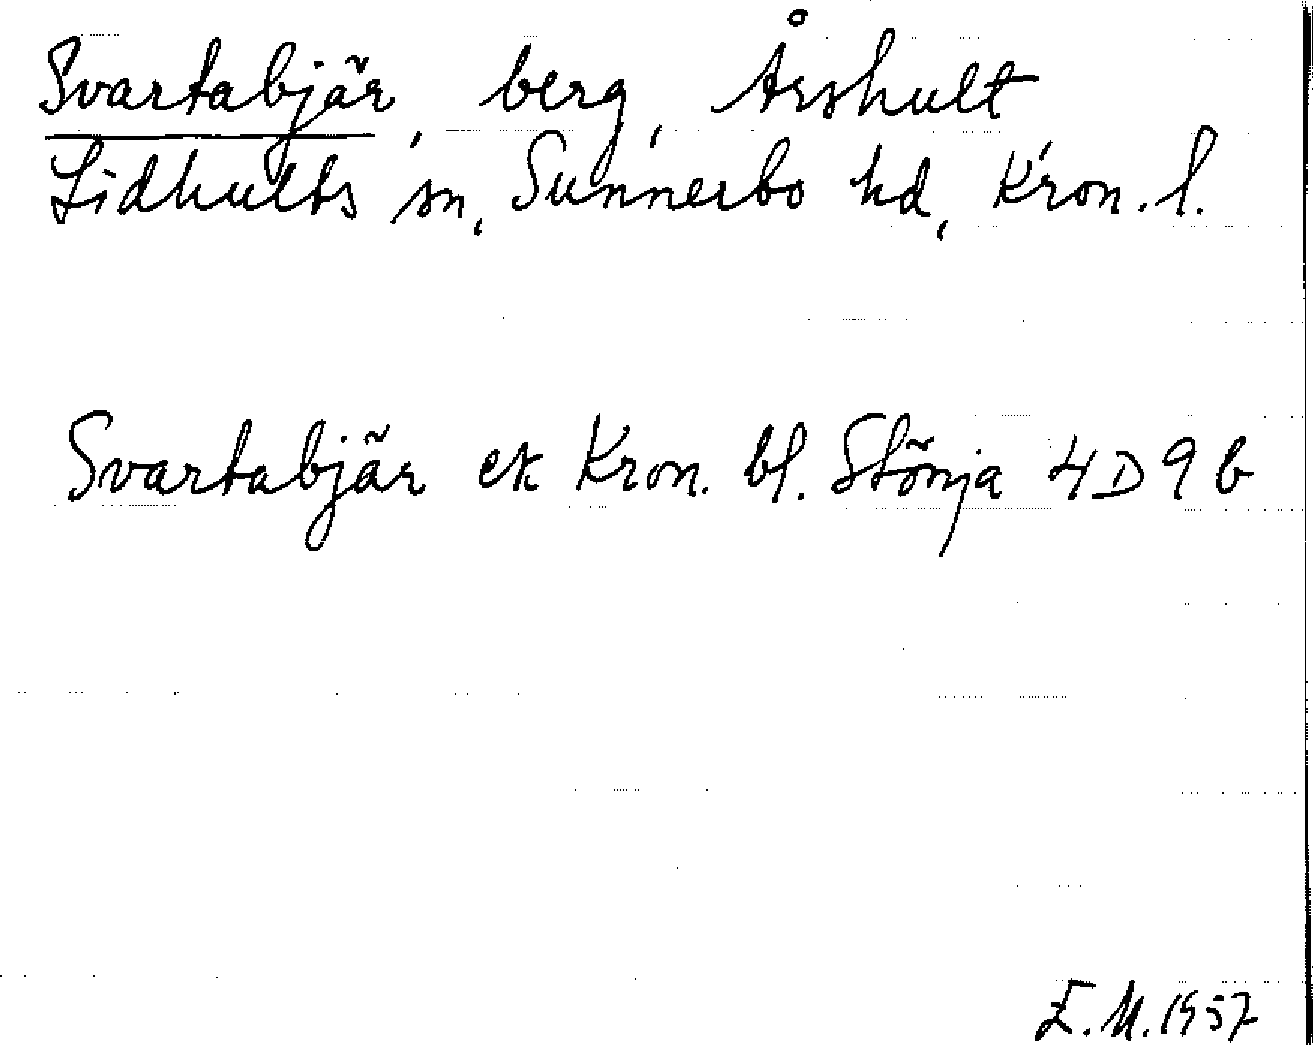 Svartabjär, berg, Årshult
Lidhults sn, Sunnerbo hd, Kron. l.
Svartabjär ek Kron. bl. Stönja 4D9b
E.M.1957